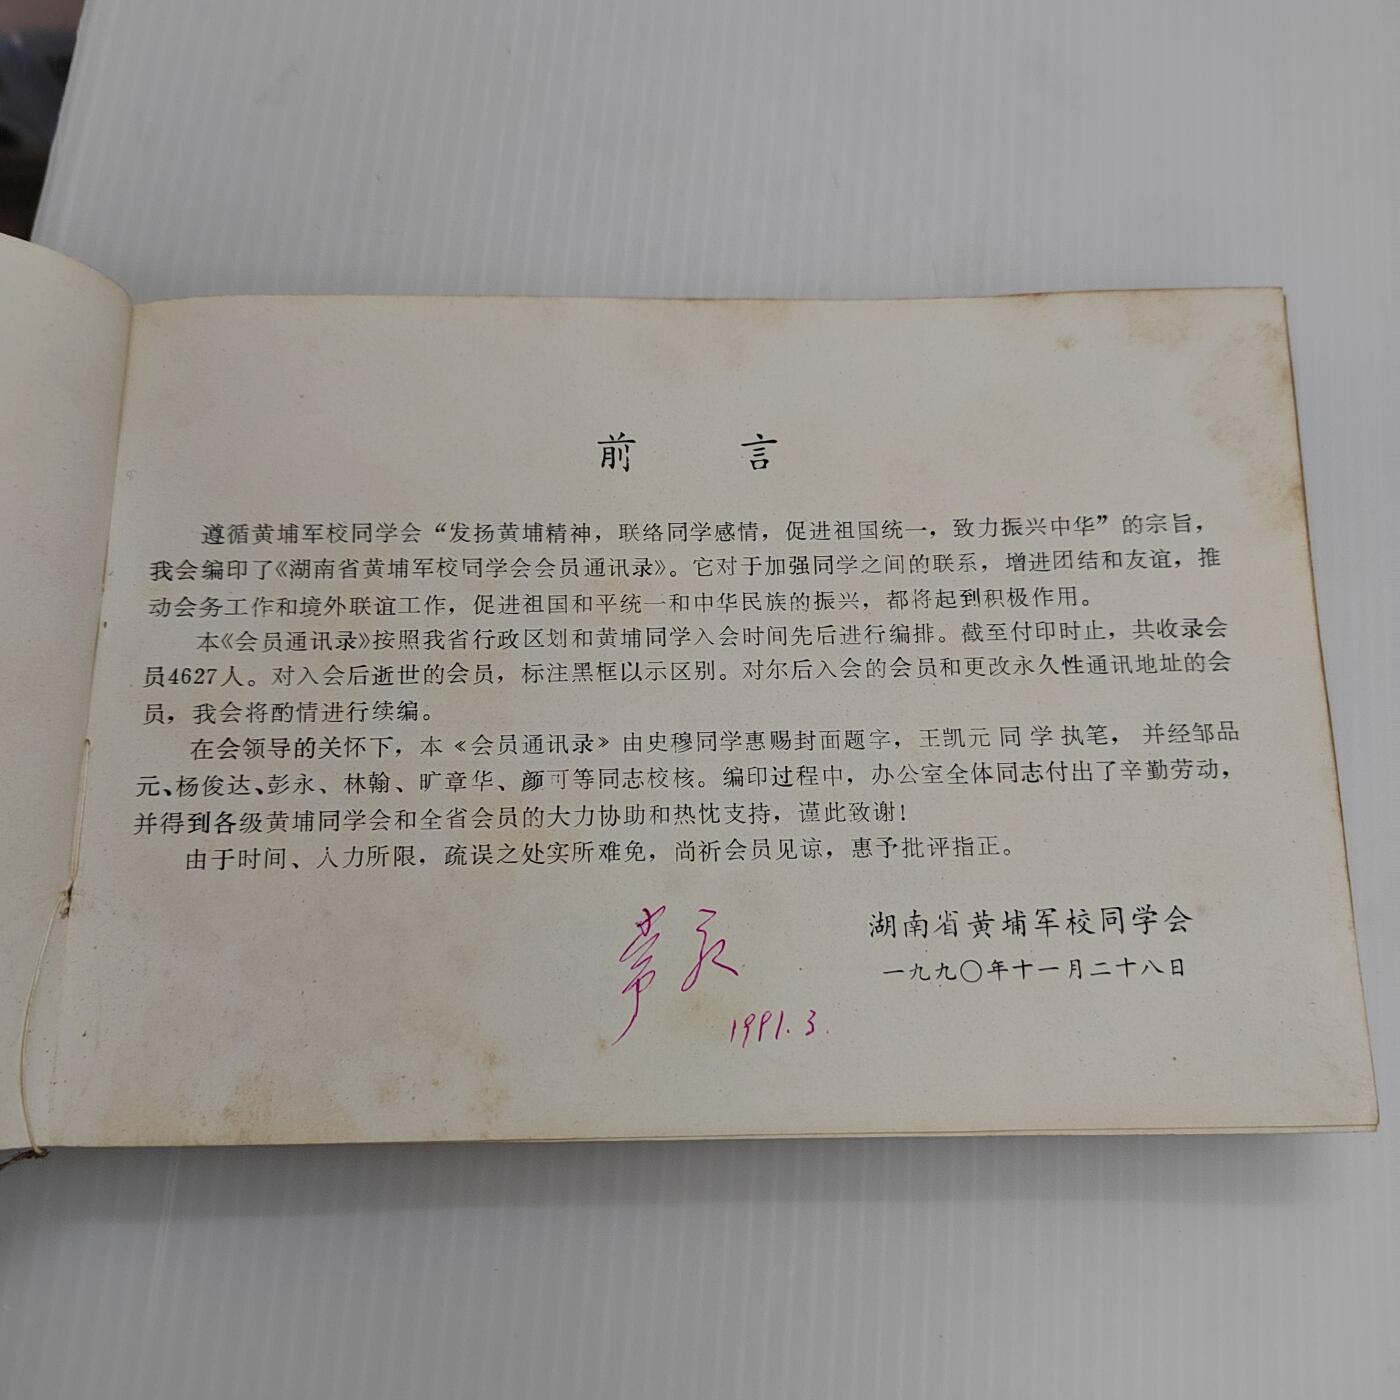 前言
遵循黄埔军校同学会“发扬黄埔精神，联络同学感情，促进祖国统一，致力振兴中华”的宗旨，
我会编印了《湖南省黄埔军校同学会会员通讯录》。它对于加强同学之间的联系，增进团结和友谊，推
动会务工作和境外联谊工作，促进祖国和平统一和中华民族的振兴，都将起到积极作用。
本《会员通讯录》按照我省行政区划和黄埔同学入会时间先后进行编排。截至付印时止，共收录会
员4627人。对入会后逝世的会员，标注黑框以示区别。对尔后入会的会员和更改永久性通讯地址的会
员，我会将酌情进行续编。
在会领导的关怀下，本《会员通讯录》由史穆同学惠赐封面题字，王凯元同学执笔，并经邹品
元、杨俊达、彭永、林翰、旷章华、颜可等同志校核。编印过程中，办公室全体同志付出了辛勤劳动，
并得到各级黄埔同学会和全省会员的大力协助和热忱支持，谨此致谢！
由于时间、人力所限，疏误之处实所难免，尚祈会员见谅，惠予批评指正。
湖南省黄埔军校同学会
一九九〇年十一月二十八日
1991.3.